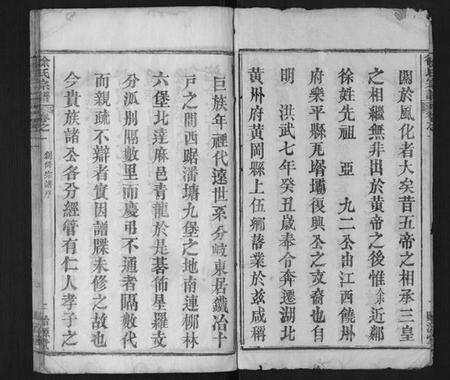 關於風化者大矣昔五帝之相承三皇
之相繼無非出於黃帝之後惟徐近鄰
徐姓先祖 亞 九二公出江西饒州
府樂平縣瓦塔壩復興公之支裔也自
明 洪武七年癸丑歲奉令奔遷湖北
黃州府黃岡縣上伍鄉落業於兹咸稱
巨族年禋代遠世系分岐東居鐵冶十
戶之間西踞潘塘九堡之地南連柳林
六堡北達麻邑青龍於是碁佈星羅支
分派別隔數里而慶弔不通者隔數代
而親疏不辯者實因譜牒未修之故也
今貴族諸公各分經管有仁人孝子之
徐氏宗譜 卷之
創修宗譜序